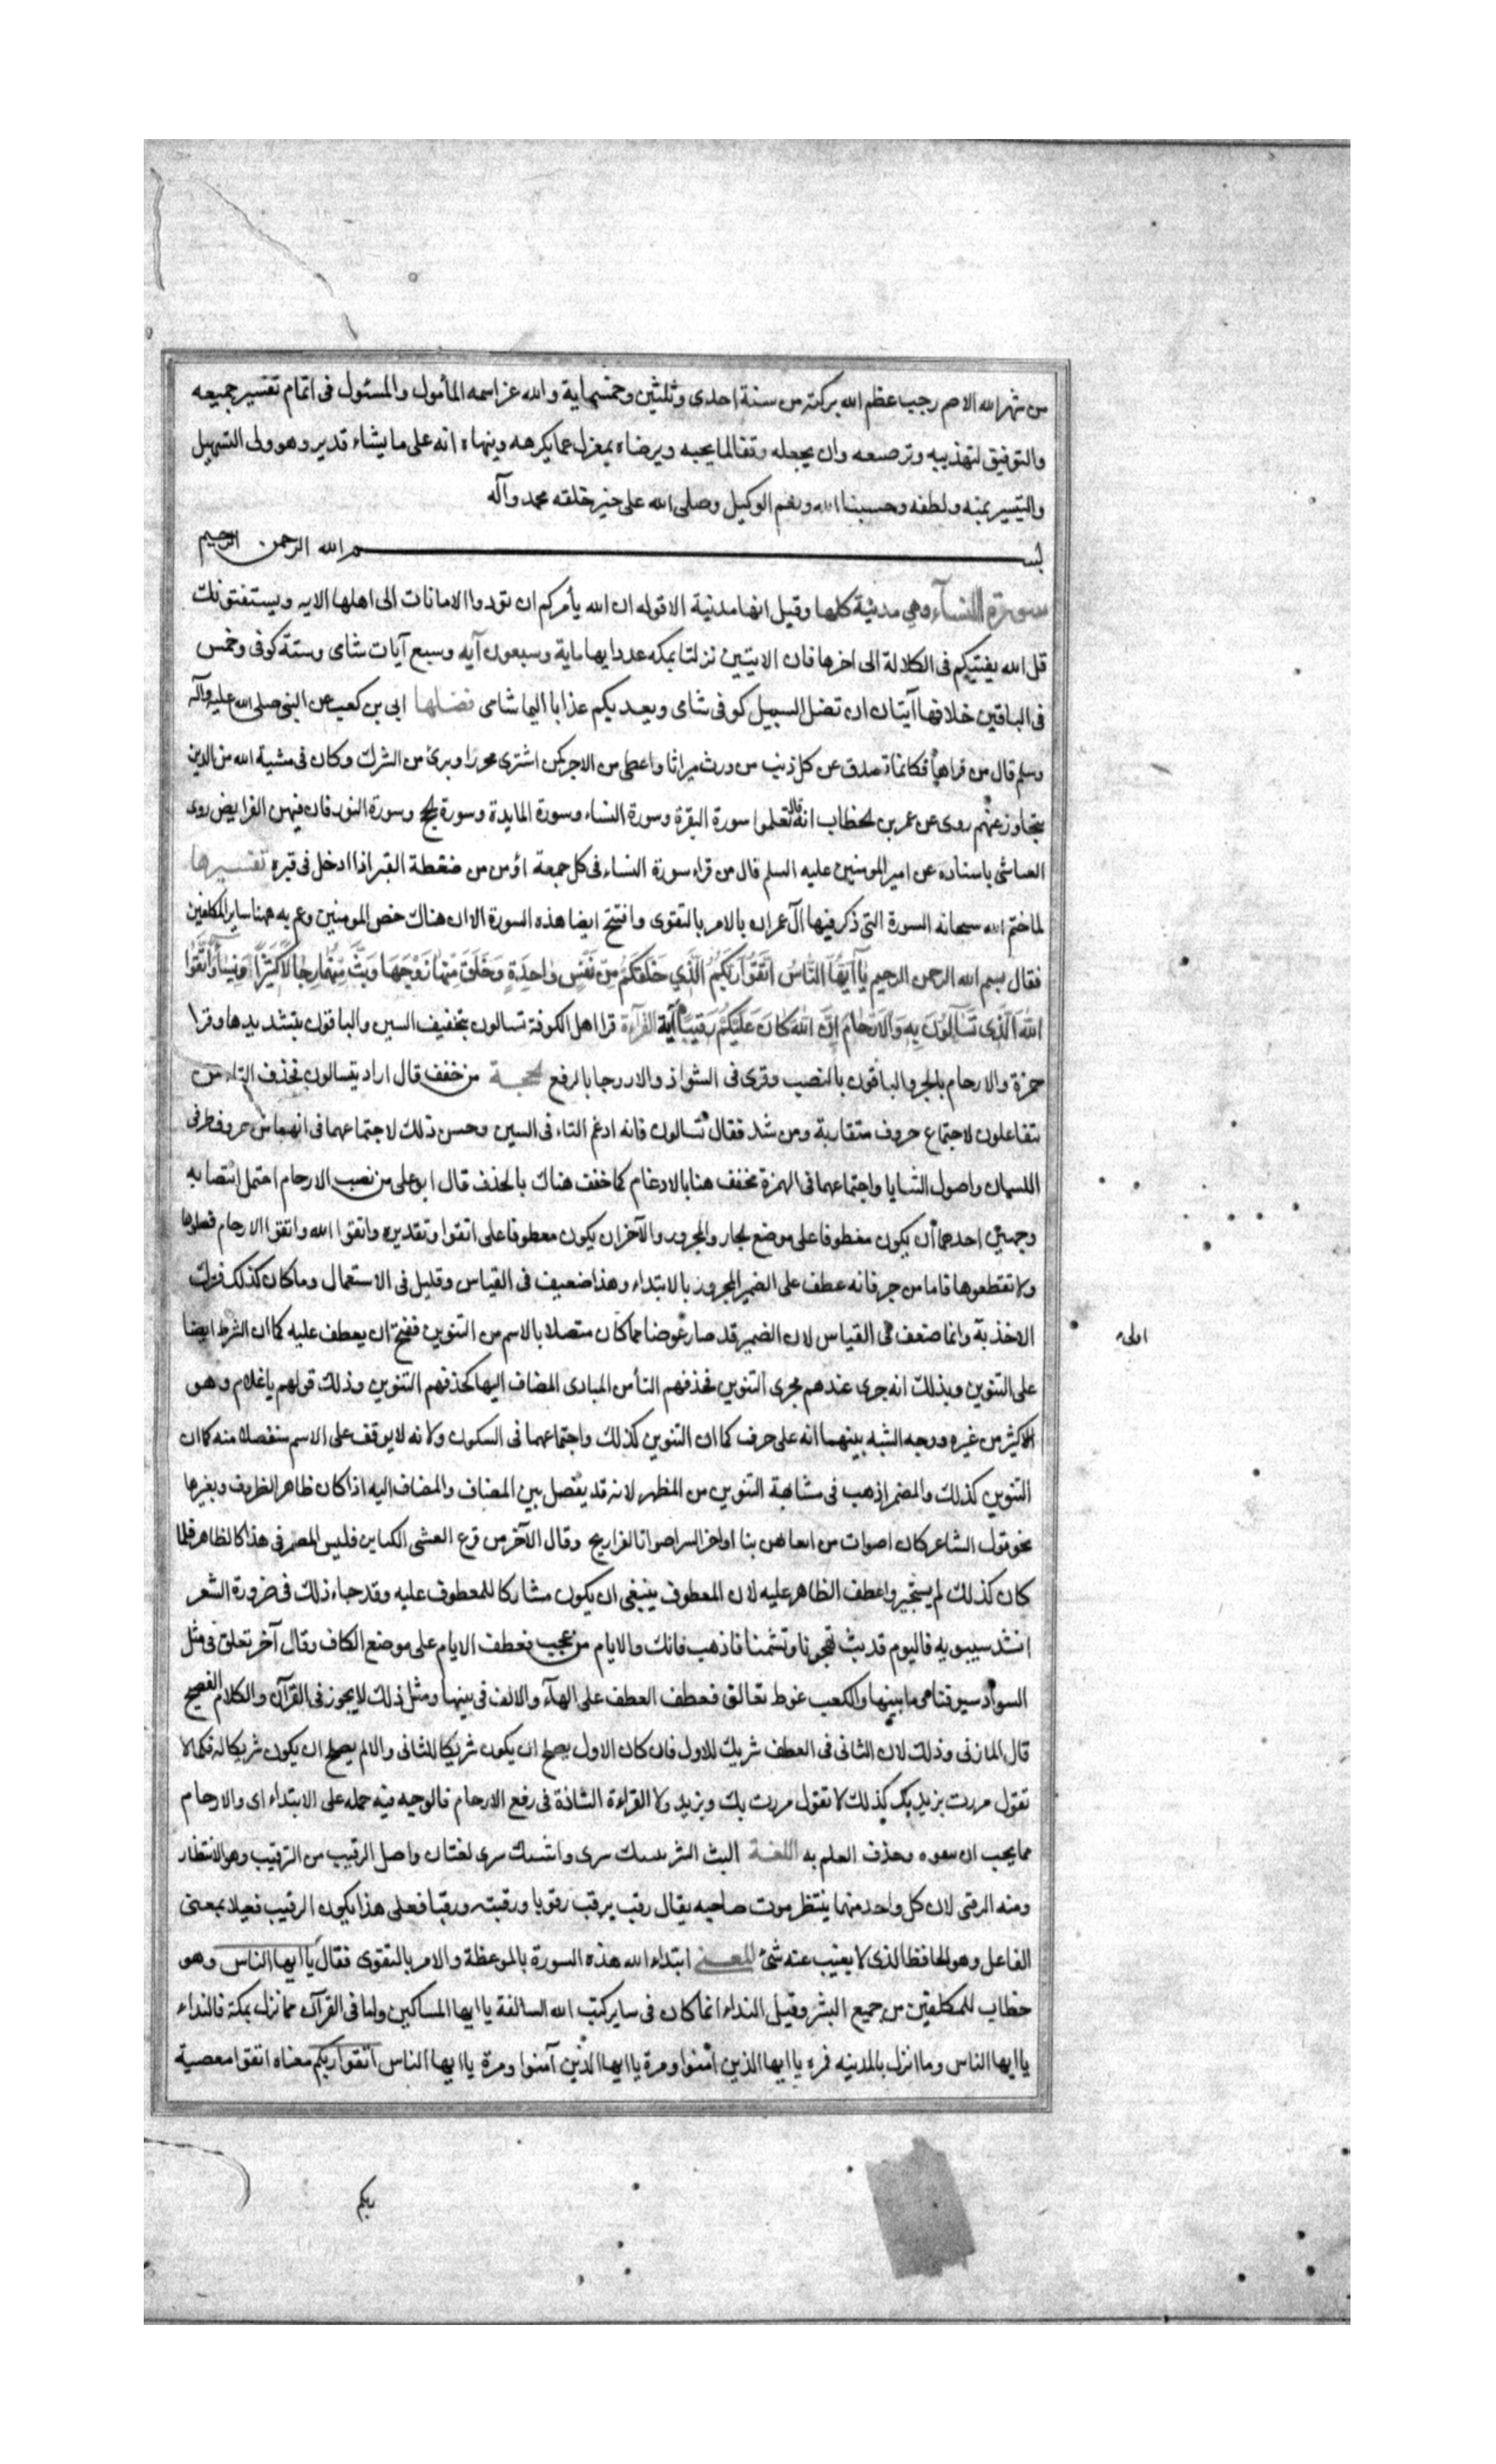 من شهر الله الاصم رجب عظم الله بركته من سنة احدى وثلثين وخمسماية والله عز اسمه المأمول والمسئول فى اتمام تفسير جميعه
والتوفيق لتهذيبه وترصيعه وان يجعله وفقا لما يحبه ويرضاه بمعزل عما يكرهه وينهاه انه على ما يشاء قدير وهو ولى التسهيل
والتيسير بمنه ولطفه وحسبنا الله ونعم الوكيل وصلى الله على خير خلقه محمد وآله
بسم الله الرحمن الرحيم
سورة النساء وهي مدنية كلها وقيل انها مدنية الا قوله ان الله يأمركم ان تؤدوا الامانات الى اهلها الايه ويستفتونك
قل الله يفتيكم فى الكلالة الى اخرها فان الايتين نزلتا بمكه عدد ايها ماية وسبعون آيه وسبع آيات شامى وستة كوفى وخمس
فى الباقين خلافها آيتان ان تضل السبيل كوفى شامى ويعذبكم عذابا اليما شامى فضلها ابى بن كعب عن النبى صلى الله عليه وآله
وسلم قال من قراها فكانما تصدق عن كل ذنب من ورث ميراثا واعطى من الاجر كمن اشترى محررا وبرئ من الشرك وكان فى مشية الله من الذين
يتجاوز عنهم روى عن عمر بن الخطاب انه قال تعلموا سورة البقرة وسورة النساء وسورة المايدة وسورة الحج وسورة النور فان فيهن الفرايض روى
العياشى باسناده عن امير المومنين عليه السلم قال من قراء سورة النساء فى كل جمعة اؤمن من ضغطة القبر اذا ادخل فى قبره تفسيرها
لما ختم الله سبحانه السورة التى ذكر فيها آل عمران بالامر بالتقوى وافتتح ايضا هذه السورة الا ان هناك خص المومنين وعم به ههنا ساير المكلفين
فقال بسم الله الرحمن الرحيم يَا أَيُّهَا النَّاسُ اتَّقُوا رَبَّكُمُ الَّذِي خَلَقَكُمْ مِنْ نَفْسٍ وَاحِدَةٍ وَخَلَقَ مِنْهَا زَوْجَهَا وَبَثَّ مِنْهُمَا رِجَالًا كَثِيرًا وَنِسَاءً وَاتَّقُوا
اللهَ الَّذِي تَسَاءَلُونَ بِهِ وَالْأَرْحَامَ إِنَّ اللهَ كَانَ عَلَيْكُمْ رَقِيبًا آية القراءة قرا اهل الكوفة تسالون بتخفيف السين والباقون بتشديدها وقرا
حمزة والارحام بالجر والباقون بالنصب وقرى فى الشواذ والارحام بالرفع الحجة من خفف قال اراد يتسالون فحذف التاء من
تتفاعلون لاجتماع حروف متقاربة ومن شدد فقال تسالون فانه ادغم التاء فى السين وحسن ذلك لاجتماعهما فى انهما من حروف طرفى
اللسان واصول الثنايا واجتماعهما فى الهمزة مخفف هنا بالادغام كما خفف هناك بالحذف قال ابو على من نصب الارحام احتمل انتصابه
وجهين احدهما أن يكون معطوفا على موضع الجار والمجرور والآخر ان يكون معطوفا على اتقوا وتقديره واتقوا الله واتقوا الارحام فصلوها
ولا تقطعوها فاما من جر فانه عطف على الضمير المجرور بالابتداء وهذا ضعيف فى القياس وقليل فى الاستعمال وما كان كذلك فترك
الاخذ به وانما ضعف فى القياس لان الضمير قد صار عوضا مما كان متصلا بالاسم من التنوين فقبح ان يعطف عليه كما ان الشرط ايضا
على التنوين ويدلك انه جرى عندهم مجرى التنوين فحذفهم التأ من المبادى المضاف اليها كحذفهم التنوين وذلك قولهم يا غلام وهو
الاكثر من غيره ووجه الشبه بينهما انه على حرف كما ان التنوين كذلك واجتماعهما فى السكون ولانه لا يوقف على الاسم منفصلا منه كما ان
التنوين كذلك والمضمر اذهب فى مشابهة التنوين من المظهر لانه قد يفصل بين المضاف والمضاف اليه اذا كان ظاهرا بالظروف وبغيرها
نحو قول الشاعر كان اصوات من ايغالهن بنا اواخر الميس اصوات الفراريج وقال الآخر من قرع القسى الكناين فليس المضمر فى هذا كالظاهر فلما
كان كذلك لم يستجيزوا عطف الظاهر عليه لان المعطوف ينبغى ان يكون مشاركا للمعطوف عليه وقد جاء ذلك فى ضرورة الشعر
انشد سيبويه فاليوم قد بت تهجونا وتشتمنا فاذهب فانك والايام من عجب فعطف الايام على موضع الكاف وقال آخر تعلق فى مثل
السوارى سيوفنا وما بينها والكعب غوط تعالق فعطف العطف على الهآء والالف فى بينها ومثل ذلك لا يجوز فى القرآن والكلام الفصيح
قال المازنى وذلك لان الثانى فى العطف شريك للاول فان كان الاول يصح ان يكون شريكا للثانى والا لم يصح ان يكون شريكا له فكما لا
تقول مررت بزيد وك كذلك لا تقول مررت بك وزيد ولا القراءة الشاذة فى رفع الارحام فالوجيه فيه حمله على الابتداء اى والارحام
مما يجب ان وحذف العلم به اللغة البث النشر لغتان واصل الرقيب من الترقيب وهو الانتظار
ومنه الرقبى لان كل واحد منهما ينتظر موت صاحبه يقال رقب يرقب رقوبا ورقبته ورقبا فعلى هذا يكون الرقيب فعيلا بمعنى
الفاعل وهو الحافظ الذى لا يغيب عنه شئ المعنى ابتداء الله هذه السورة بالموعظة والامر بالتقوى فقال يا ايها الناس وهو
خطاب للمكلفين من جميع البشر وقيل النداء انما كان فى ساير كتب الله السالفة يا ايها المساكين واما فى القرآن مما نزل بمكة فالنداء
يا ايها الناس وما انزل بالمدينه فره يا ايها الذين آمنوا ومرة يا ايها الذين آمنوا ومرة يا ايها الناس اتقوا ربكم معناه اتقوا معصية
ربكم